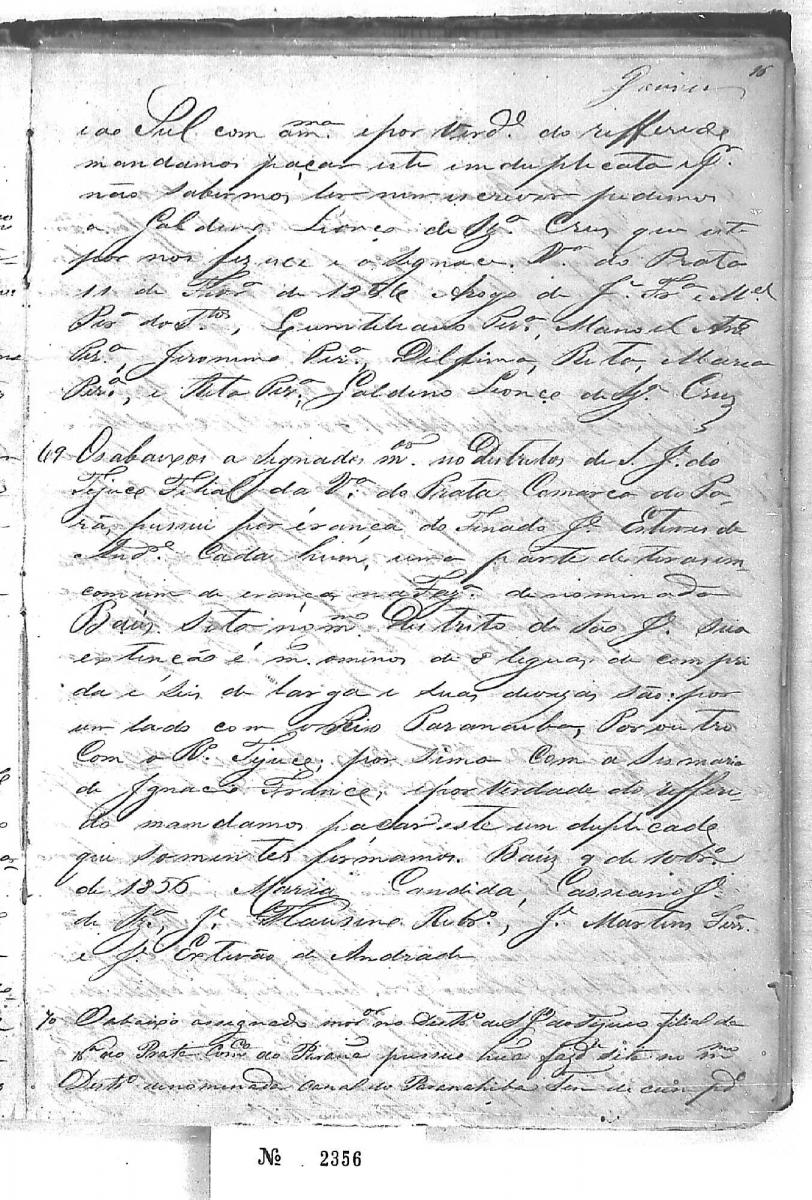 96
e ao Sul com a mma e por verde do refferido
mandamos paçar este em duplicata e pr
não sabermos ler nem escrever pedimos
a Galdino Lionço de Sza Cruz que este
por nos fizece e asignace. Va do Prata
11 de Febro de 1856 Arogo de Je Fra e Mel
Pira do Stos, Pira, Manoel Ante
Pira, Jeronimo Pira, Delfina, Rita, Maria
Pira, e Rita Pira, Galdino Lionço de Sza Cruz
69 Os abaixos asignados mores no Distritos de S. Je do
Tijuco Filial da Va do Prata Comarca do Pa-
rãna, pussui por érança do Finado Je Esteves de
Andre Cada hum, uma parte de teras em
comum de erança, na Faza denominada
Baúz Sito no mmo Distrito de São Je sua
extenção é mais ominos de 8 leguas de compri
da e Seis de larga e suas divizas são: por
um lado com o Rio Paranaiba, Por outro
Com o Ro Tijuco, por sima Com a Sismaria
de Ignacio France, e por Verdade do refferi-
do mandamos paçar este un duplicade
que somentes firmamos. Baúz 9 de 10bro
de 1856 Maria Candida, Cassiano Je
de Sza, Je Flausino Ribro, Je Martins Ferra
e Je Estevão de Andrade
70 O abaixo assignado mor no Distro de S Je do Tijuco filial da
Va do Prata Comca do Paraná pussue hua fazda sita no mmo
Distro denominada Canal do Paranahiba Tem de cumpdo
№ 2356